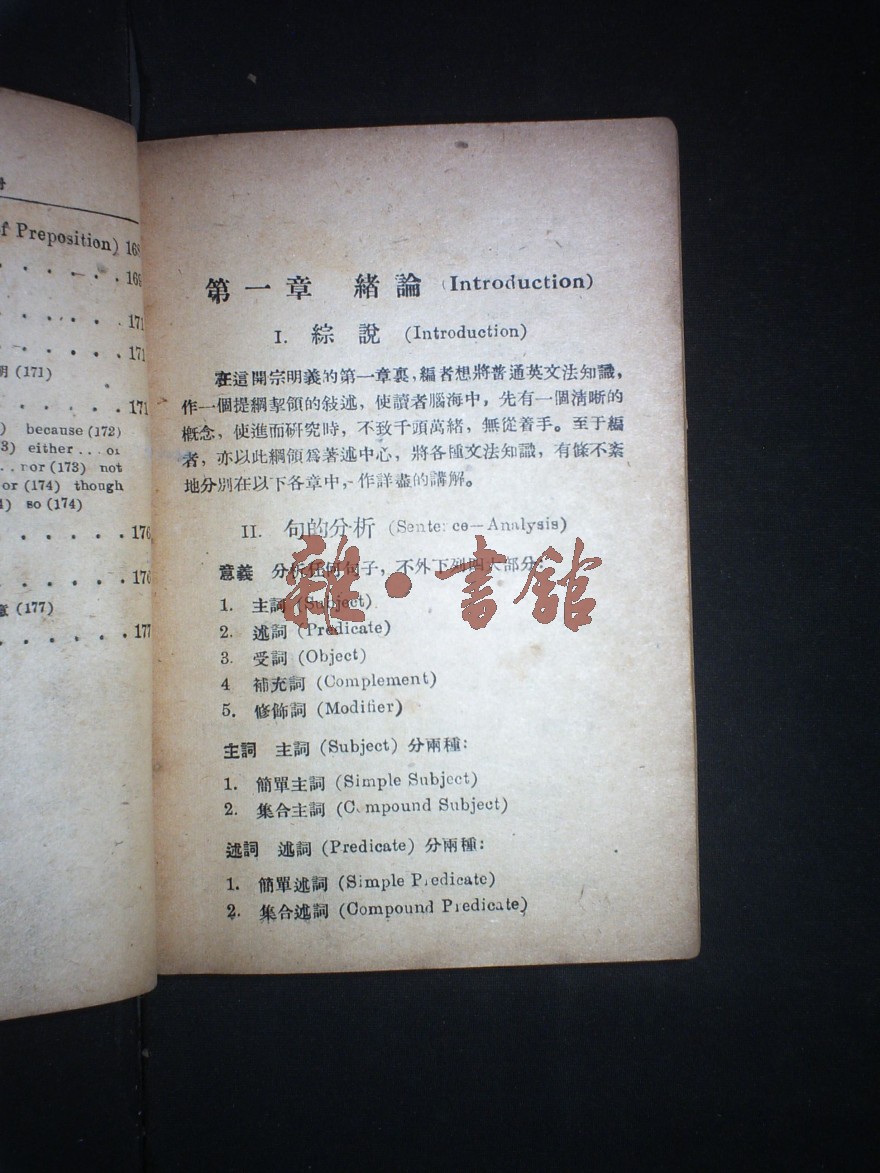 f Preposition) 168
169
171
171
明 (171)
171
) because (172)
3) either ... or
. . nor (173) not
or (174) though
4) so (174)
176
176
意 (177)
177
第一章 緒論 (Introduction)
I. 綜說 (Introduction)
在這開宗明義的第一章裏，編者想將普通英文法知識，
作一個提綱挈領的敍述，使讀者腦海中，先有一個清晰的
槪念，使進而硏究時，不致千頭萬緒，無從着手。至于編
者，亦以此綱領爲著述中心，將各種文法知識，有條不紊
地分別在以下各章中，作詳盡的講解。
II. 句的分析 (Sente: ce—Analysis)
意義 分析任何句子，不外下列四大部分：
1. 主詞 (Subject)
2. 述詞 (Predicate)
3. 受詞 (Object)
4 補充詞 (Complement)
5. 修飾詞 (Modifier)
主詞 主詞 (Subject) 分兩種：
1. 簡單主詞 (Simple Subject)
2. 集合主詞 (Compound Subject)
述詞 述詞 (Predicate) 分兩種：
1. 簡單述詞 (Simple Predicate)
2. 集合述詞 (Compound Predicate)
雜·書館